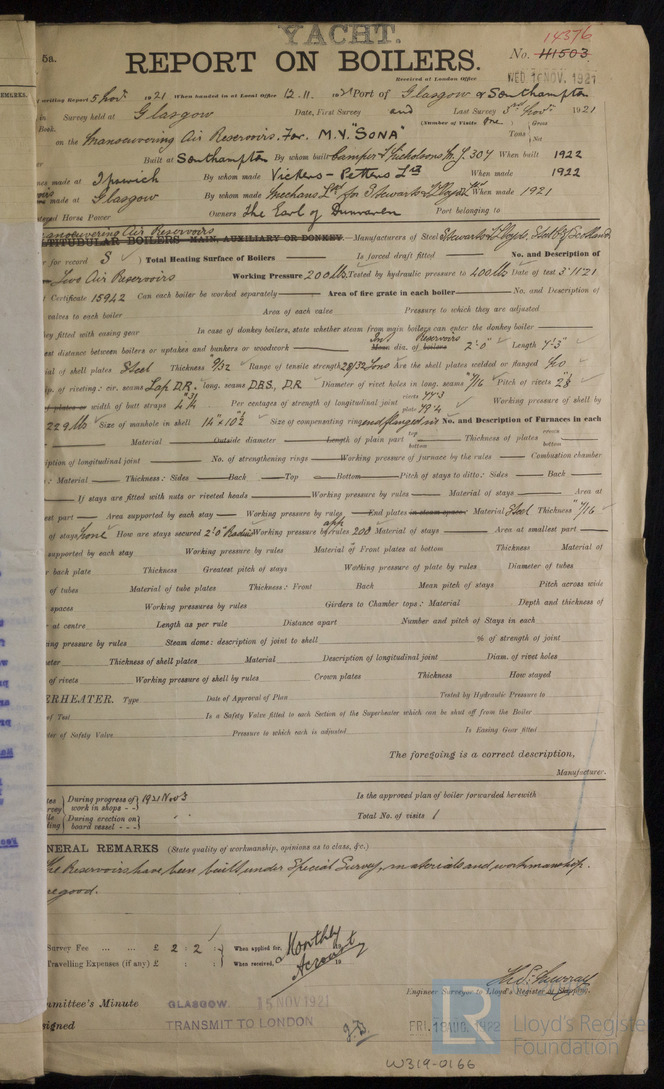 YACHT.
14376
5a. REPORT ON BOILERS. No. 41503
Received at London Office WED. 16 NOV. 1921
writing Report 5 Novr. 1921 When handed in at Local Office 12.11. 1921 Port of Glasgow & Southampton
in Survey held at Glasgow Date, First Survey and Last Survey 3rd Novr. 1921
Book. (Number of Visits One) Gross
on the Manoeuvering Air Reservoirs. For. M.V. "SONA" Tons Net
Built at Southampton By whom built Camper & Nicholsons No. 307 When built 1922
made at Ipswich By whom made Vickers - Petters Ltd When made 1922
made at Glasgow By whom made Mechans Ltd for Stewarts & Lloyds Ltd When made 1921
Horse Power Owners The Earl of Dunraven Port belonging to
Manoeuvering Air Reservoirs
MULTITUBULAR BOILERS MAIN, AUXILIARY OR DONKEY.—Manufacturers of Steel Stewarts & Lloyds, Steel Co of Scotland
for record S) Total Heating Surface of Boilers Is forced draft fitted No. and Description of
Two Air Reservoirs Working Pressure 200 lbs Tested by hydraulic pressure to 400 lbs Date of test 3.11.21
Certificate 15942 Can each boiler be worked separately Area of fire grate in each boiler No. and Description of
valves to each boiler Area of each valve Pressure to which they are adjusted
they fitted with easing gear In case of donkey boilers, state whether steam from main boilers can enter the donkey boiler
est distance between boilers or uptakes and bunkers or woodwork Int Mean dia. of boilers Reservoirs 2'-0" Length 7'-3"
ial of shell plates Steel Thickness 9/32 Range of tensile strength 28/32 Tons Are the shell plates welded or flanged No
of riveting: cir. seams Lap D.R. long. seams D.B.S, D.R Diameter of rivet holes in long. seams 11/16 Pitch of rivets
plates or width of butt straps Per centages of strength of longitudinal joint rivets 77.3 plate 79.4 Working pressure of shell by
229 lbs Size of manhole in shell 14" x 10½ Size of compensating ring end flanged in No. and Description of Furnaces in each
Material Outside diameter Length of plain part top bottom Thickness of plates crown bottom
iption of longitudinal joint No. of strengthening rings Working pressure of furnace by the rules Combustion chamber
: Material Thickness: Sides Back Top Bottom Pitch of stays to ditto: Sides Back
If stays are fitted with nuts or riveted heads Working pressure by rules Material of stays Area at
est part Area supported by each stay Working pressure by rules End plates in steam space: Material Steel Thickness 11/16
of stays None How are stays secured 2'0" Radius Working pressure by app rules 200 Material of stays Area at smallest part
supported by each stay Working pressure by rules Material of Front plates at bottom Thickness Material of
r back plate Thickness Greatest pitch of stays Working pressure of plate by rules Diameter of tubes
of tubes Material of tube plates Thickness: Front Back Mean pitch of stays Pitch across wide
spaces Working pressures by rules Girders to Chamber tops: Material Depth and thickness of
at centre Length as per rule Distance apart Number and pitch of Stays in each
ing pressure by rules Steam dome: description of joint to shell % of strength of joint
eter Thickness of shell plates Material Description of longitudinal joint Diam. of rivet holes
of rivets Working pressure of shell by rules Crown plates Thickness How stayed
ERHEATER. Type Date of Approval of Plan Tested by Hydraulic Pressure to
of Test Is a Safety Valve fitted to each Section of the Superheater which can be shut off from the Boiler
ter of Safety Valve Pressure to which each is adjusted Is Easing Gear fitted
The foregoing is a correct description,
Manufacturer.
During progress of work in shops - - 1921 Nov 3 Is the approved plan of boiler forwarded herewith
During erection on board vessel - - - Total No. of visits 1
NERAL REMARKS (State quality of workmanship, opinions as to class, &c.)
The Reservoirs have been built under Special Survey, materials and workmanship
are good.
Survey Fee ... ... £ 2 : 2 : When applied for, Monthly 19
Travelling Expenses (if any) £ : : When received, Account 19
Engineer Surveyor to Lloyd's Register of Shipping.
mmittee's Minute GLASGOW. 15 NOV 1921
signed TRANSMIT TO LONDON FRI. 18 AUG. 1922
LR Lloyd's Register Foundation
W319-0166